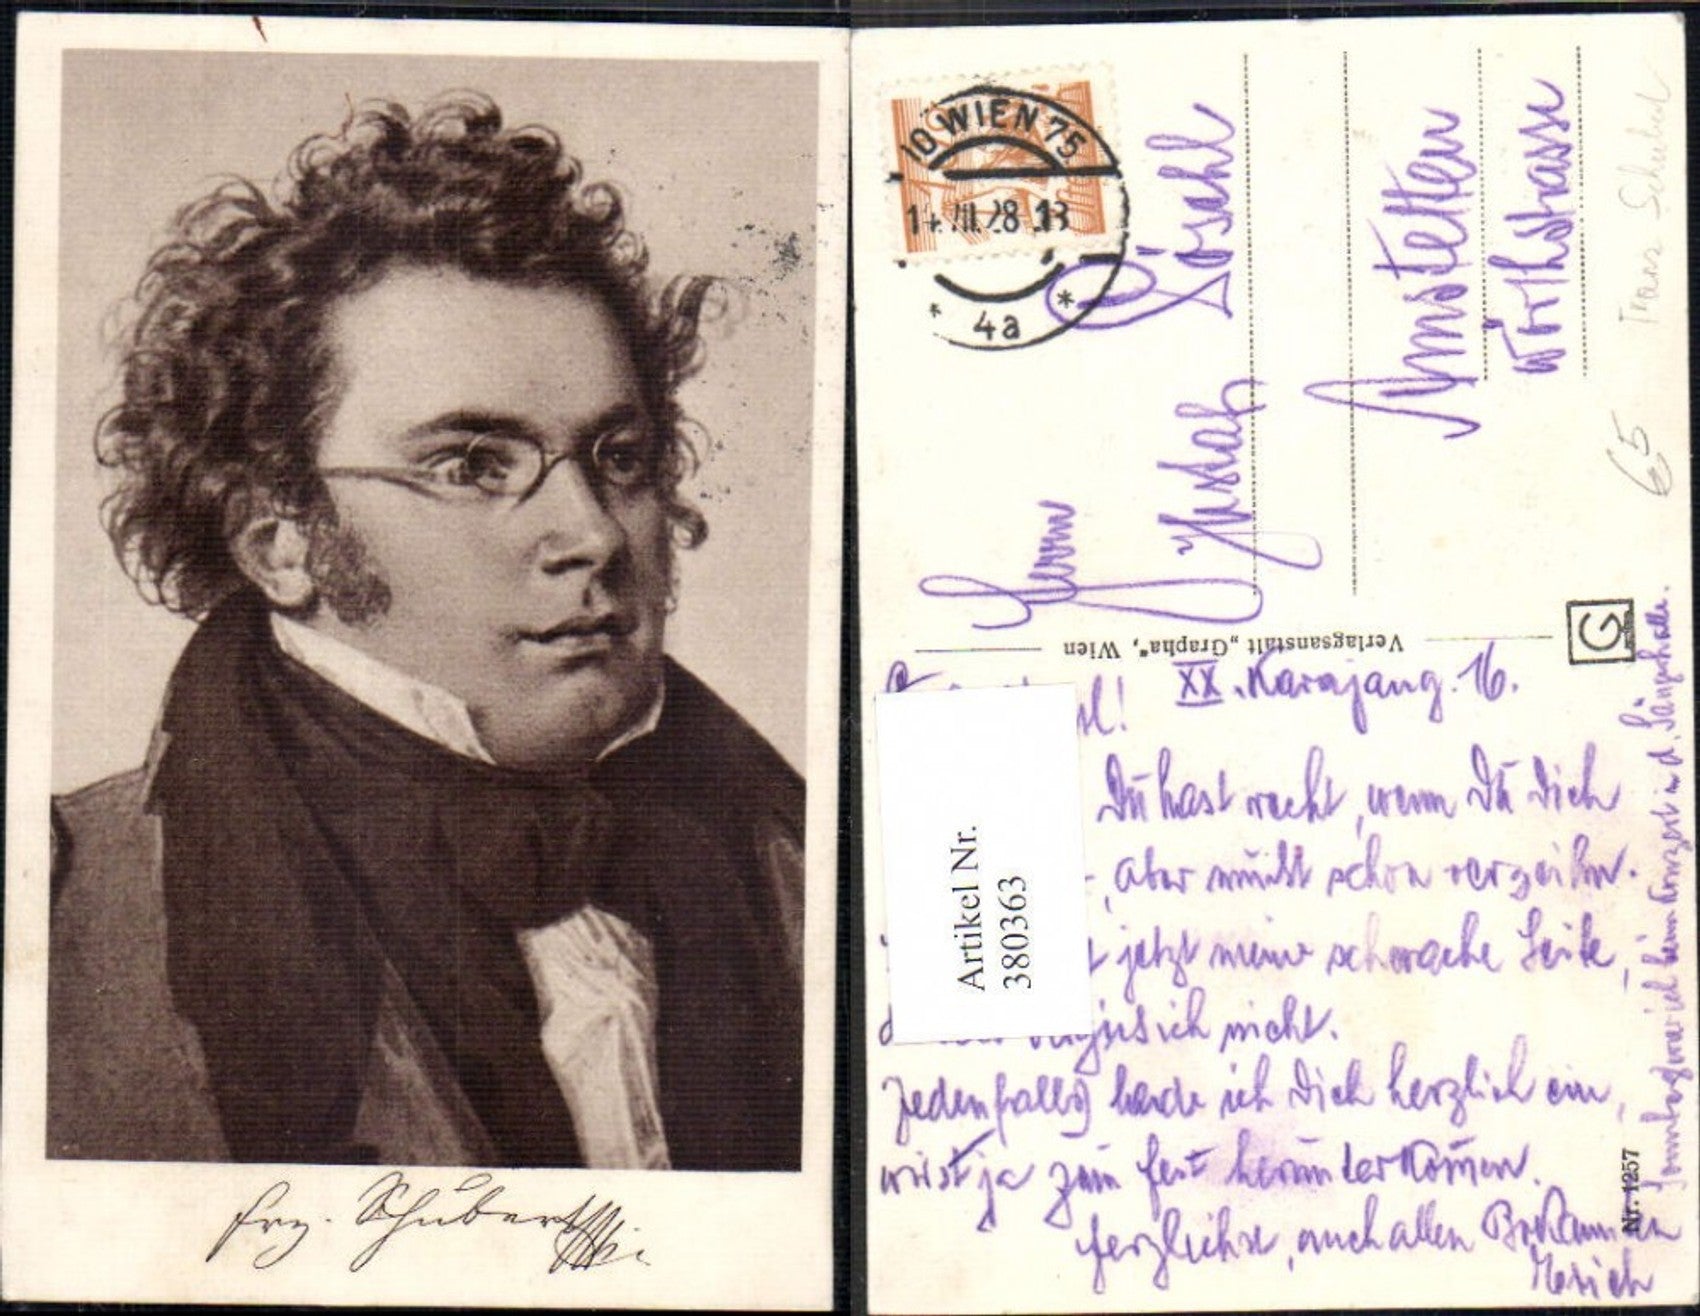 Frz. Schubert
10 WIEN 75
14.VII.28 13
* 4a *
Herrn
Gustav Löschl
Amstetten
Wörthstrasse
Franz Schubert
65
Verlagsanstalt „Grapha", Wien
G
XX. Karajang. 16.
Du hast recht, wenn Du Dich
, aber mußt schon verzeihn.
jetzt meine schwache Seite,
ich nicht.
Jedenfalls lade ich Dich herzlich ein,
wirst ja zum Fest herunterkommen.
Herzlichst, auch allen Bekannten
Erich
Sonntag war ich beim Konzert in d. Sängerhalle.
Nr. 1257
Artikel Nr.
380363